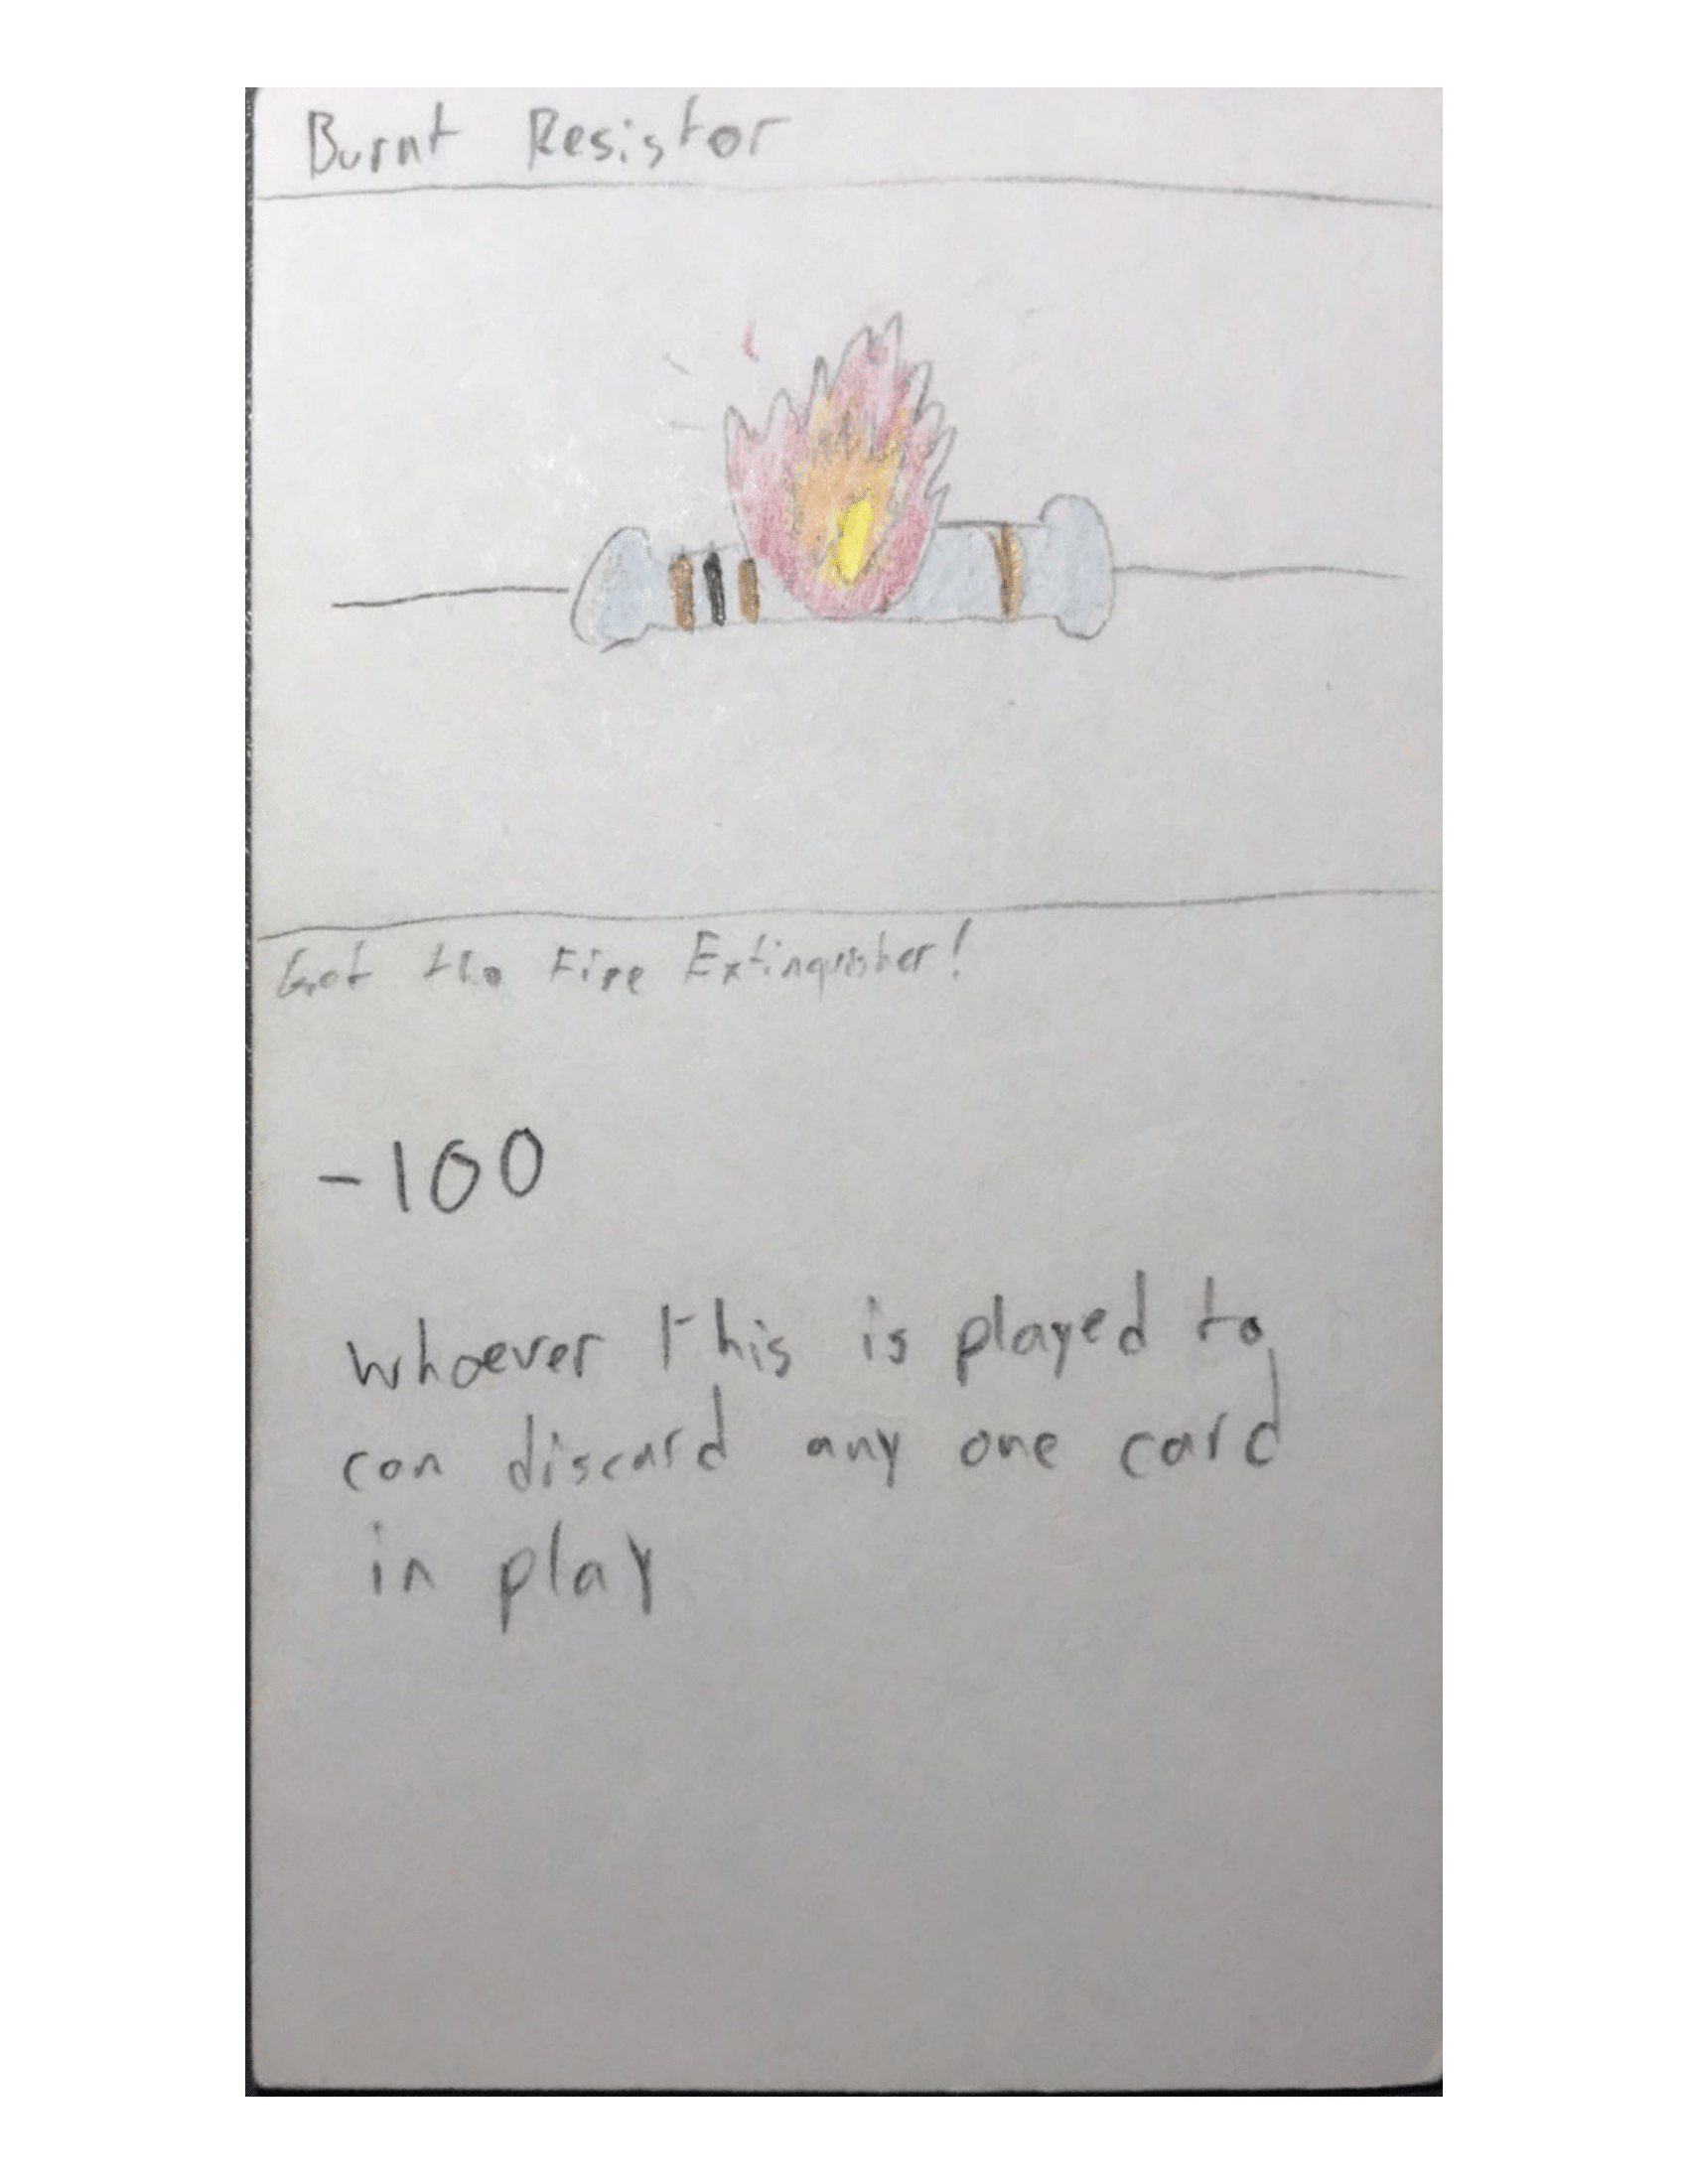 Burnt Resistor
Get the Fire Extinquisher!
-100
whoever this is played to,
can discard any one card
in play